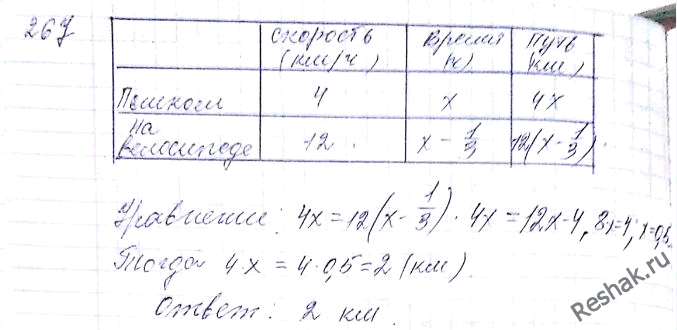 267
скорость (км/ч) Время (ч) Путь (км)
Пешком 4 x 4x
на велосипеде 12 x - 1/3 12(x - 1/3)
Уравнение: 4x = 12(x - 1/3). 4x = 12x - 4, 8x=4; x=0,5.
Тогда 4·x = 4·0,5 = 2 (км)
Ответ: 2 км.
Reshak.ru